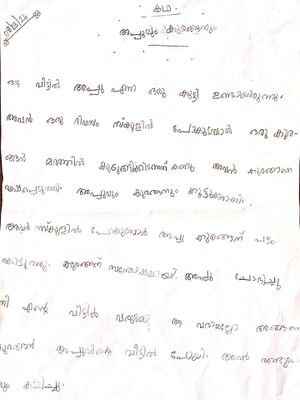 08/8/24
കഥ
അപ്പുവും കുരങ്ങനും
ഒരു വീട്ടിൽ അപ്പു എന്ന ഒരു കുട്ടി ഉണ്ടായിരുന്നു.
അവൻ ഒരു ദിവസം സ്കൂളിൽ പോകുമ്പോൾ ഒരു കുര-
ങ്ങൻ മരത്തിൽ കുടുങ്ങികിടന്നത് കണ്ടു അവൻ കുരങ്ങനെ
രക്ഷപ്പെടുത്തി. അപ്പുവും കുരങ്ങനും കൂട്ടുകാരായി.
അവർ സ്കൂളിൽ പോകുമ്പോൾ അപ്പു കുരങ്ങന് പഴം
കൊടുത്തു. കുരങ്ങന് സന്തോഷമായി. അപ്പു ചോദിച്ചു
നീ എന്റെ വീട്ടിൽ വരുമോ ആ വരാമല്ലോ അങ്ങനെ
കുരങ്ങൻ അപ്പുവിന്റെ വീട്ടിൽ പോയി. അവർ
കളിച്ചു.